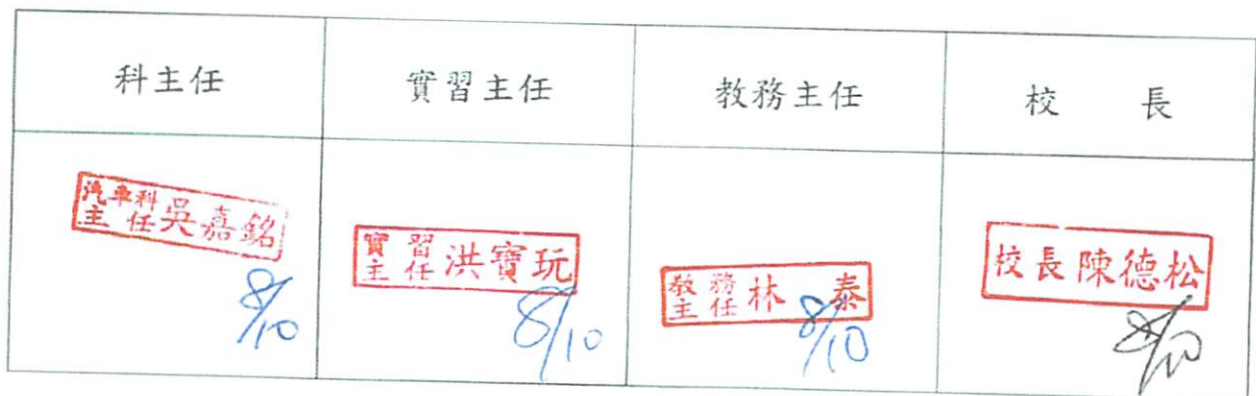 科主任
實習主任
教務主任
校 長
汽車科
主任 吳嘉銘
8/10
實習
主任 洪寶玩
8/10
教務
主任 林 泰
8/10
校長陳德松
8/10